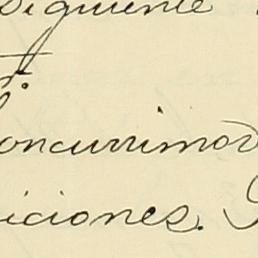 Siguiente
oncurrimos
iciones.